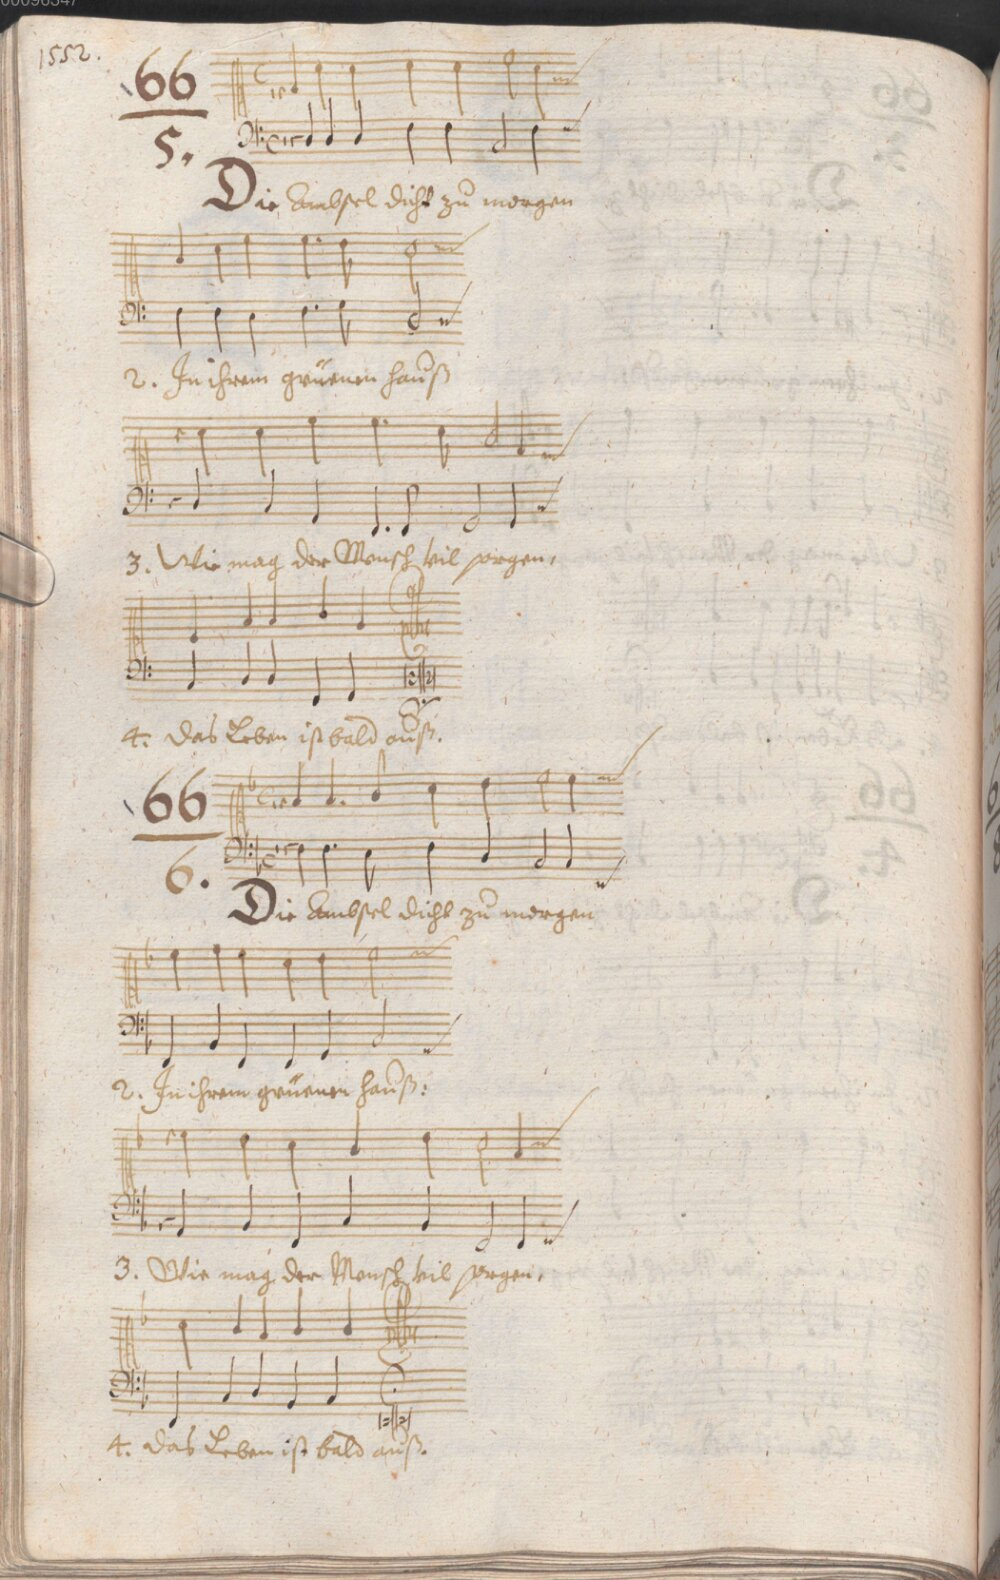 00096347
1552.
66
5.
Die Ambsel dicht zu morgen
2. In ihrem grüenen hauß
3. Wie mag der Mensch vil sorgen,
4. das Leben ist bald auß.
66
6.
Die Ambsel dicht zu morgen
2. In ihrem grüenen hauß:
3. Wie mag der Mensch vil sorgen,
4. das Leben ist bald auß.